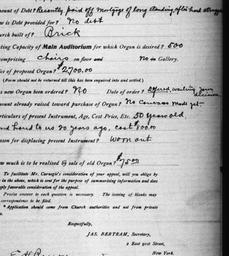 ount of Debt? Recently paid off mortgage of long standing after hard struggle
ow is Debt provided for? No debt
urch built of? Brick
ting Capacity of Main Auditorium for which Organ is desired? 500
omprising chairs on floor and No in Gallery.
ice of proposed Organ? $2700.00
(Form should not be returned till this has been inquired into and settled.)
s new Organ been ordered? No Date of Order?
ount already raised toward purchase of Organ? No Canvass made yet
rticulars of present Instrument, Age, Cost Price, Etc. 50 years old.
hand to us 20 years ago, cost $100.00
ason for displacing present Instrument? Worn out
ow much is to be realized by sale of old Organ? $75.00
To facilitate Mr. Carnegie's consideration of your appeal, will you oblige by
in the above, which is sent for the purpose of summarizing information and
ply favorable consideration of the appeal.
Precise answer to each question is necessary. The issuing of blanks may
correspondence to be filed.
* Application should come from Church authorities and not from private
Respectfully,
JAS. BERTRAM, Secretary,
2 East 91st Street,
New York.